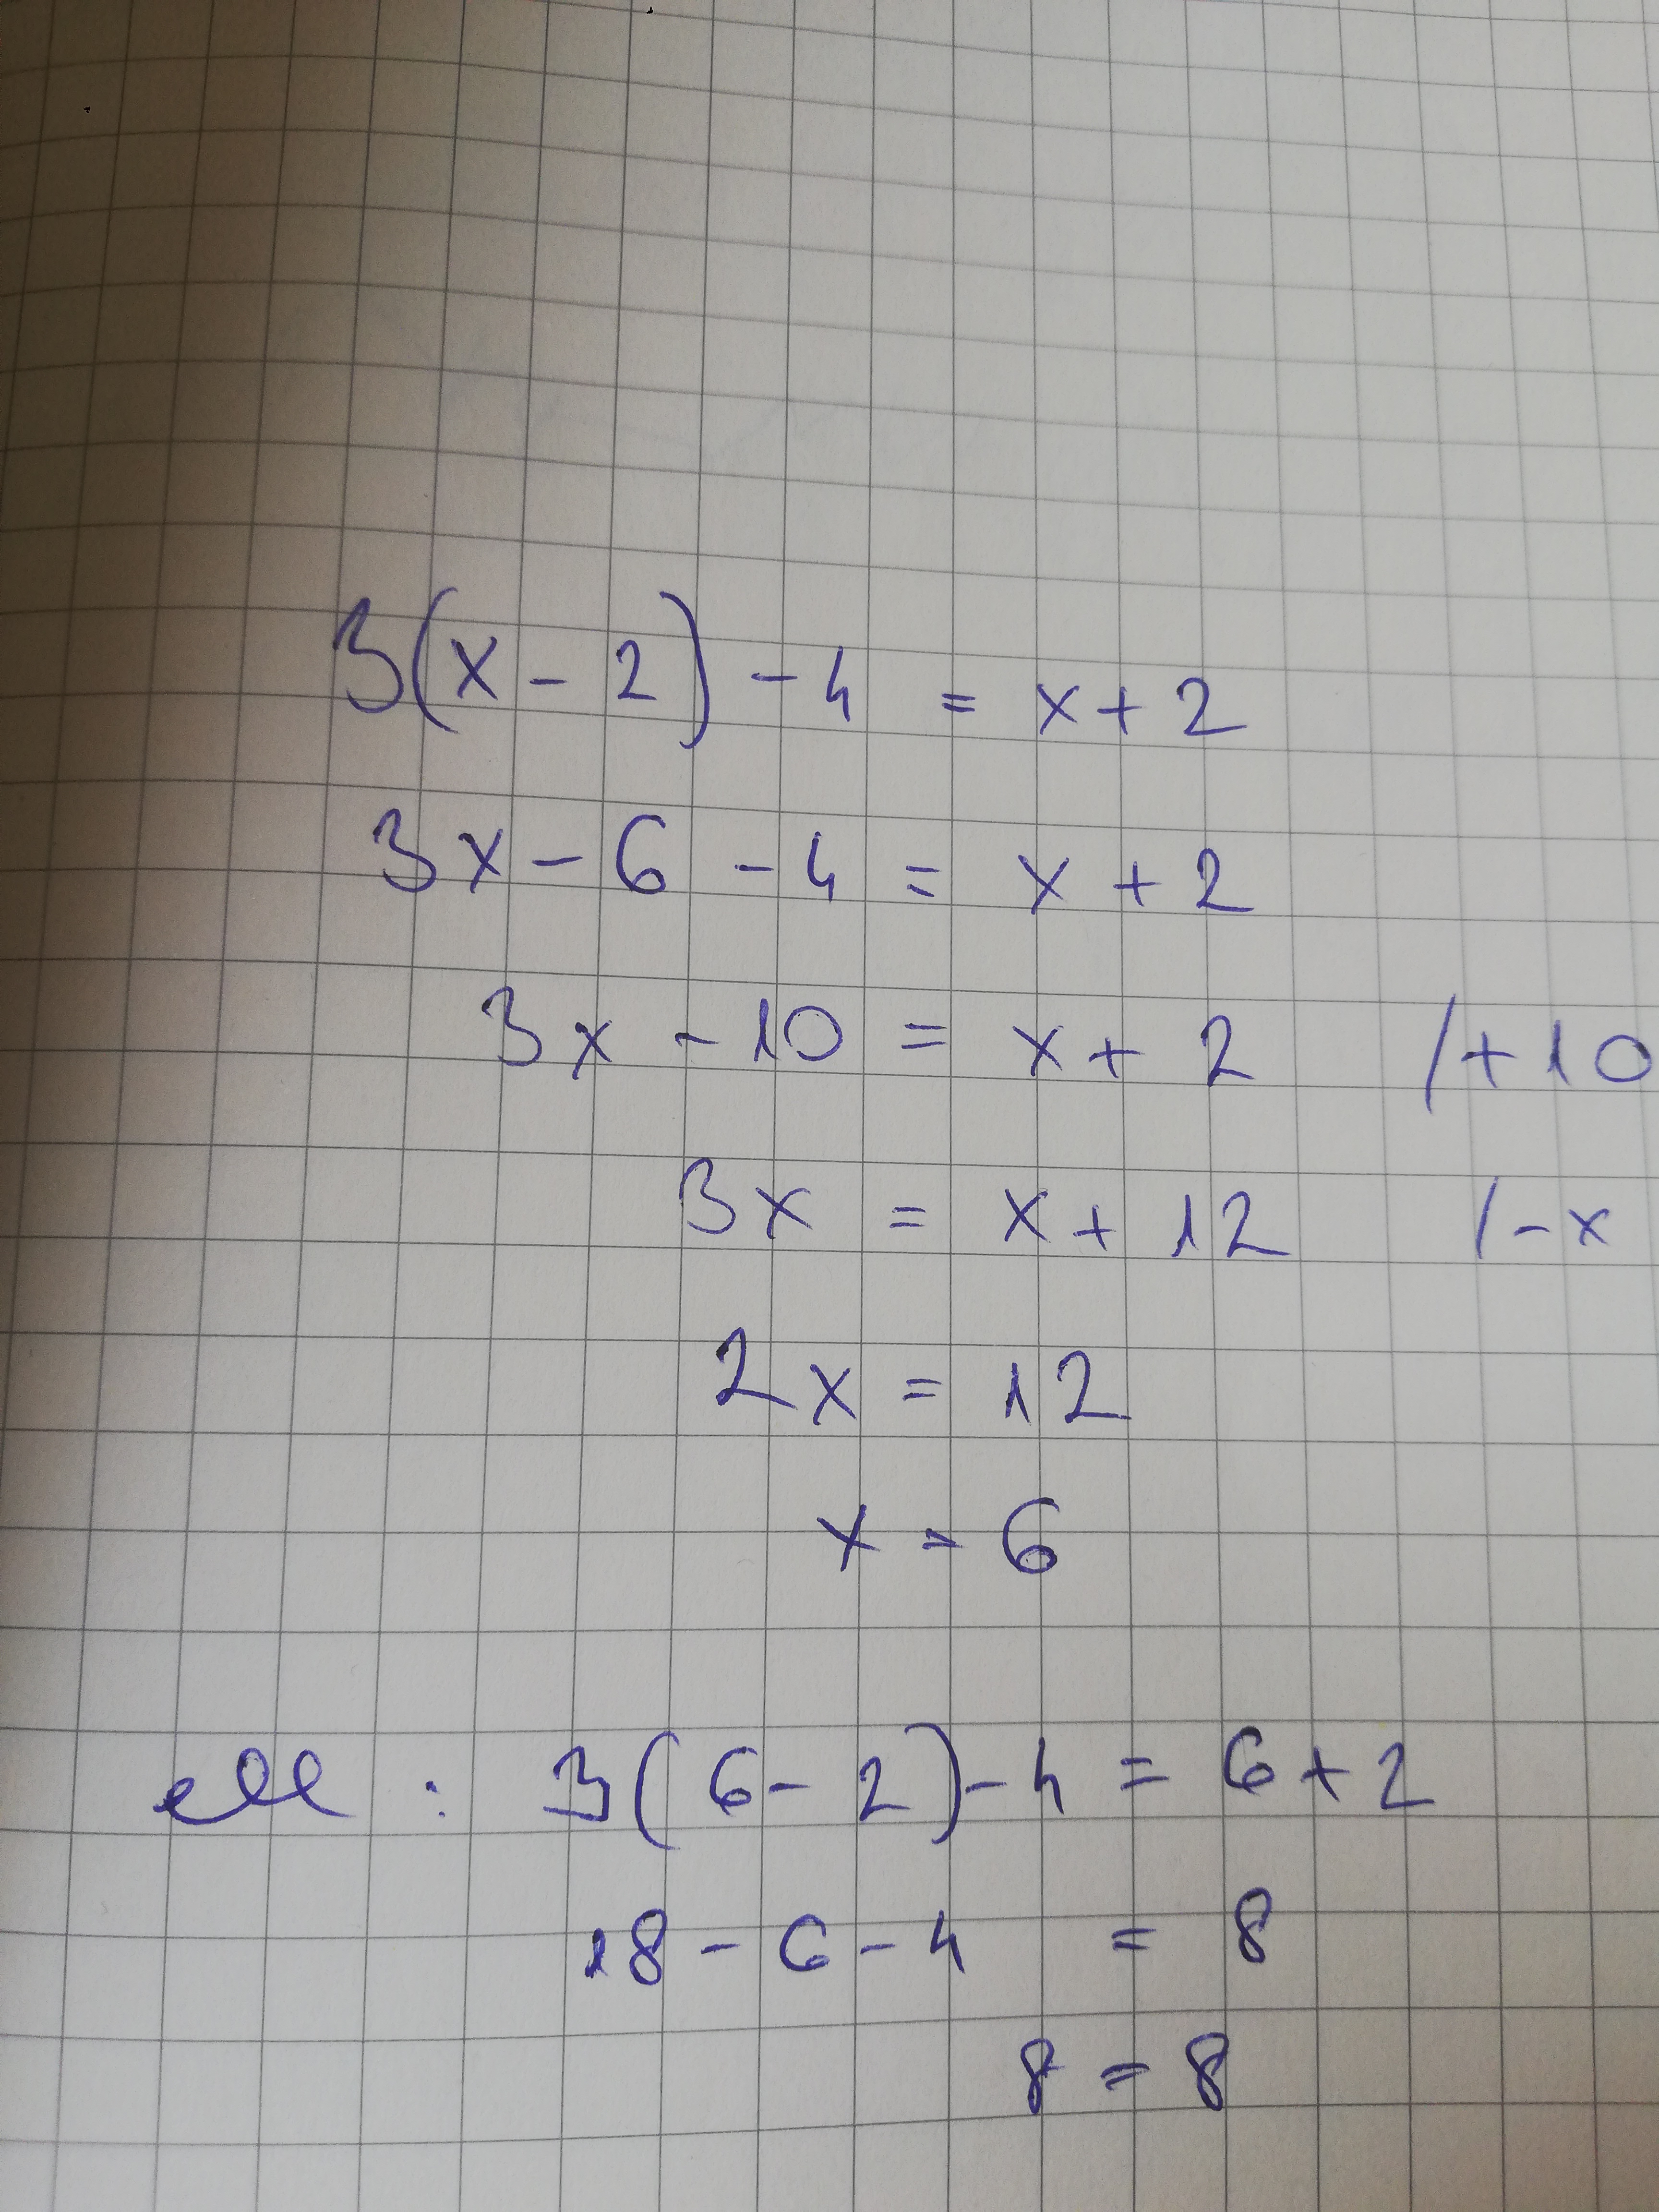 3(x - 2) - 4 = x + 2
3x - 6 - 4 = x + 2
3x - 10 = x + 2 /+10
3x = x + 12 /-x
2x = 12
x = 6
ell : 3(6 - 2) - 4 = 6 + 2
18 - 6 - 4 = 8
8 = 8